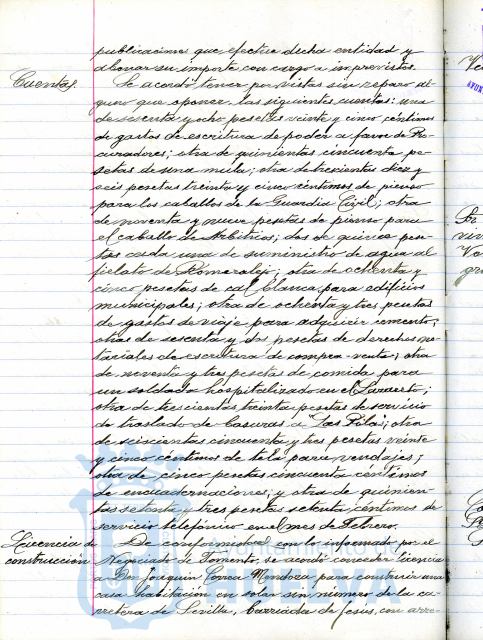 publicaciones que efectue dicha entidad y
abonar su importe con cargo a imprevistos.
Cuentas.
Se acordó tener por vistas sin reparo al-
guno que oponer, las siguientes cuentas: una
de sesenta y ocho pesetas veinte y cinco céntimos
de gastos de escritura de poder a favor de Pro-
curadores; otra de quinientas cincuenta pe-
setas de una mula; otra de trescientas diez y
seis pesetas treinta y cinco céntimos de pienso
para los caballos de la Guardia Civil; otra
de noventa y nueve pesetas de pienso para
el caballo de Arbitrios; dos de quince pese-
tas cada una de suministro de agua al
fielato de Romeralejo; otra de ochenta y
cinco pesetas de cal blanca para edificios
municipales; otra de ochenta y tres pesetas
de gastos de viaje para adquirir cemento;
otras de sesenta y dos pesetas de derechos no-
tariales de escritura de compra-venta; otra
de noventa y tres pesetas de comida para
un soldado hospitalizado en el Lazareto;
otra de trescientas treinta pesetas de servicio
de traslado de basuras a "Las Pilas"; otra
de seiscientas cincuenta y tres pesetas veinte
y cinco céntimos de tela para vendajes;
otra de cinco pesetas cincuenta céntimos
de encuadernaciones; y otra de quinien-
tas setenta y tres pesetas setenta céntimos de
servicio telefónico en el mes de Febrero.
Licencia de
construcción
De conformidad con lo informado por el
Negociado de Fomento, se acordó conceder licencia
a Don Joaquin Correa Mendoza para construir una
casa habitación en solar sin número de la ca-
rretera de Sevilla, barriada de Jesús, con arre-